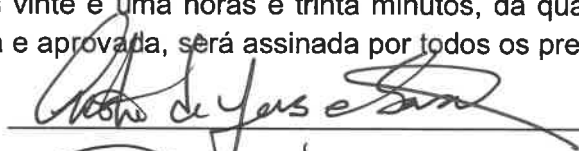 vinte e uma horas e trinta minutos, da qua
e aprovada, será assinada por todos os pre
de